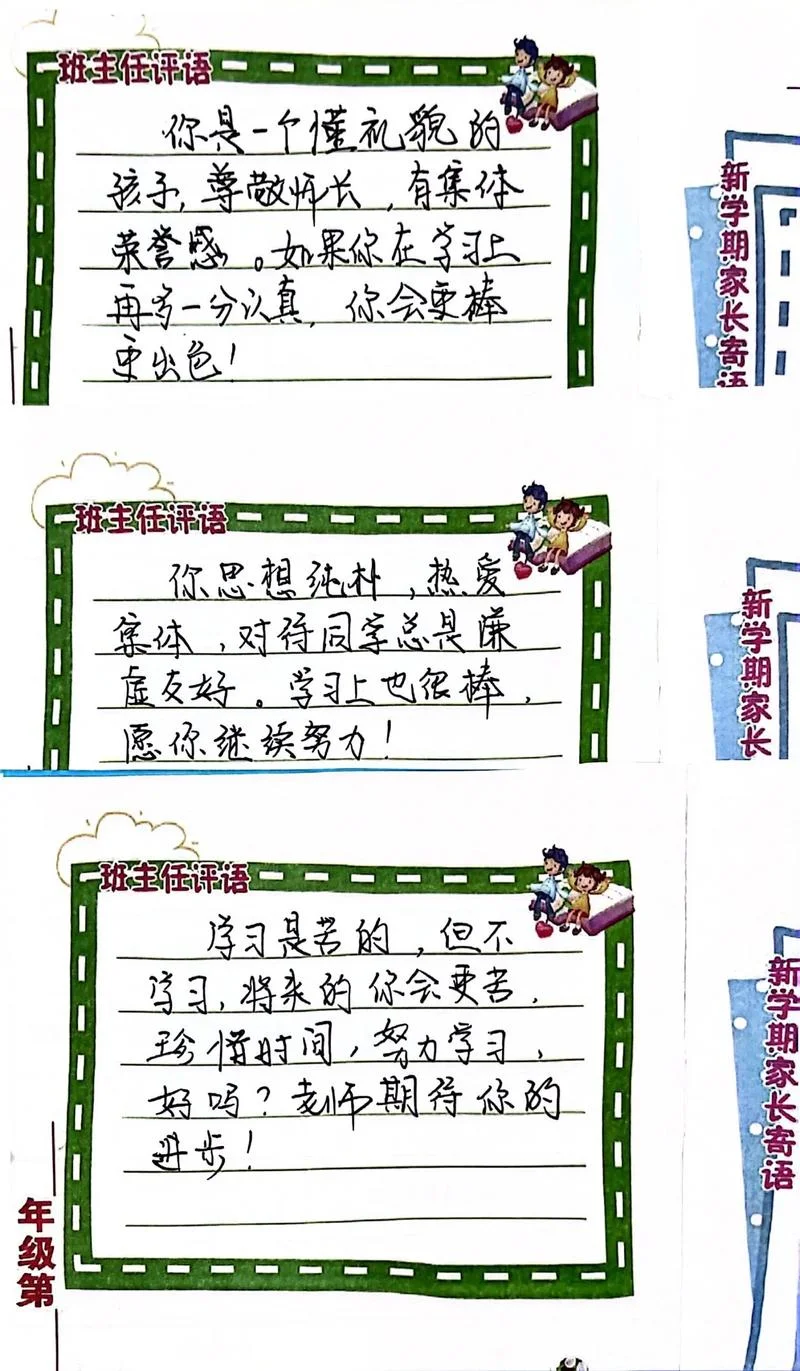 班主任评语
你是一个懂礼貌的
孩子,尊敬师长,有集体
荣誉感。如果你在学习上
再多一分认真,你会更棒
更出色!
新学期家长寄语
班主任评语
你思想纯朴,热爱
集体,对待同学总是谦
虚友好。学习上也很棒,
愿你继续努力!
新学期家长
班主任评语
学习是苦的,但不
学习,将来的你会更苦,
珍惜时间,努力学习,
好吗?老师期待你的
进步!
新学期家长寄语
年级第